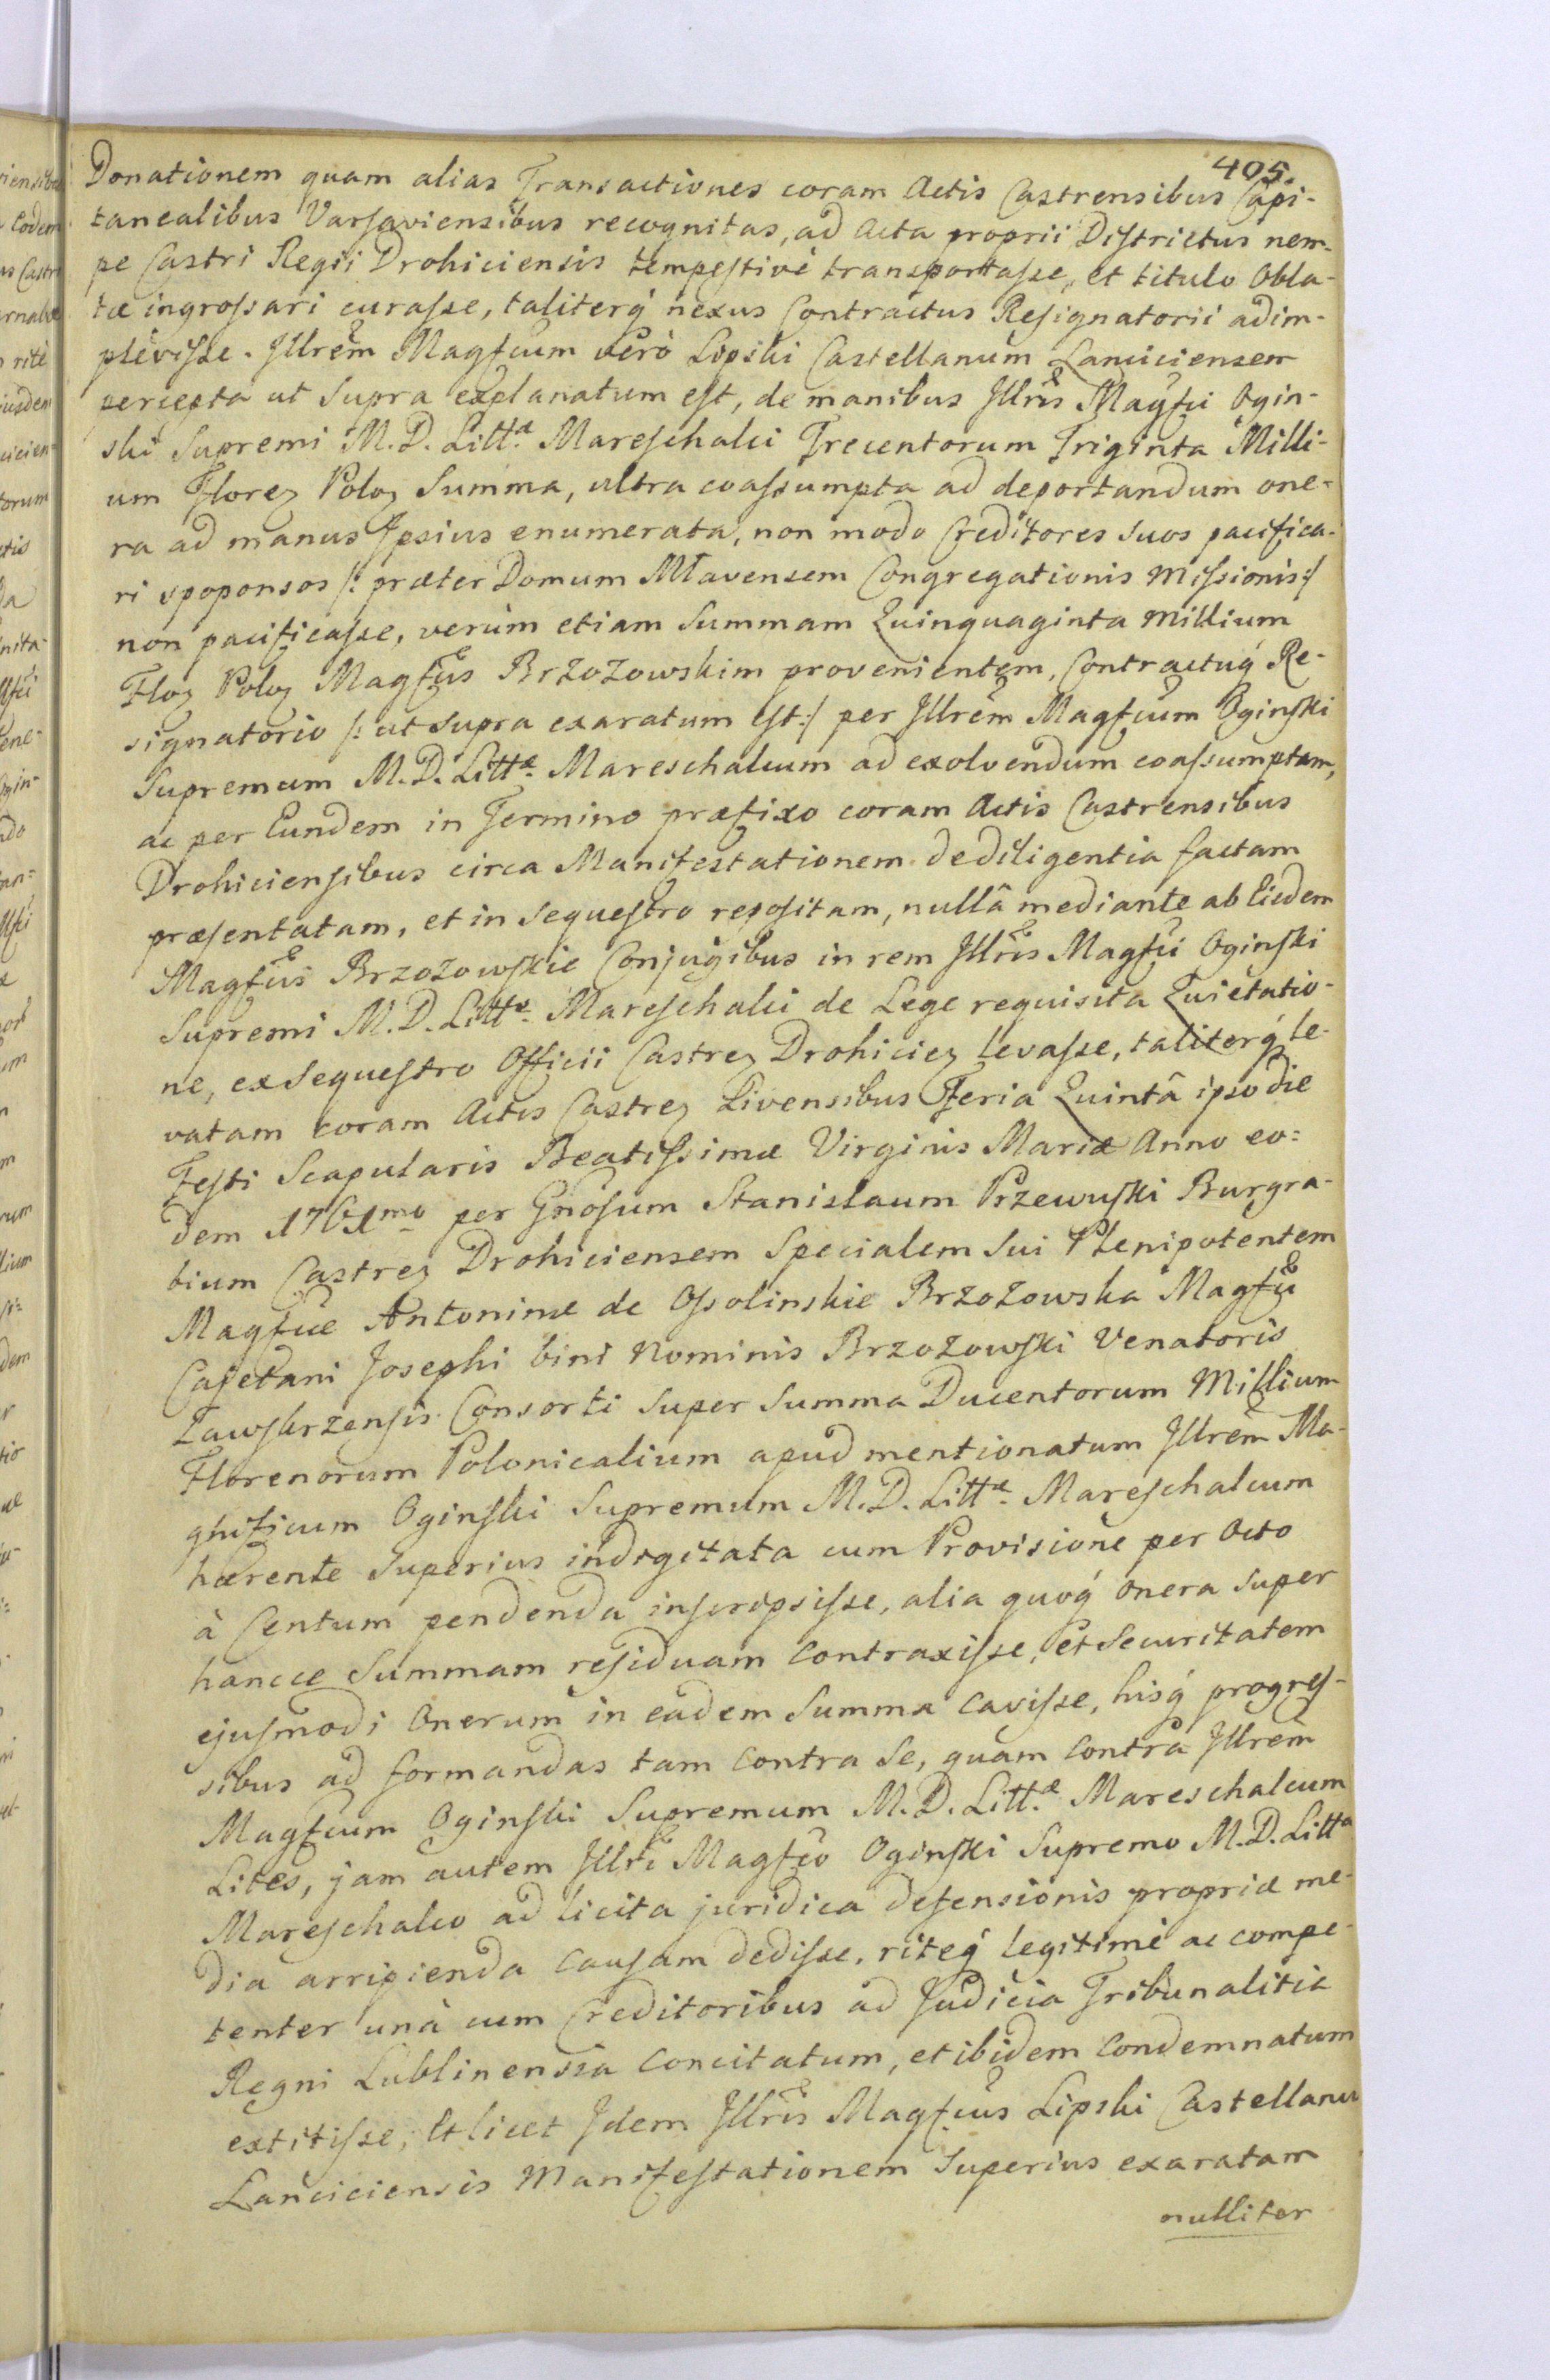 405.
Donationem quam alias Transactiones coram Actis Castrensibus Capi-
tanealibus Varsaviensibus recognitas, ad Acta proprii Districtus nem-
pe Castri Regii Drohiciensis tempestivè transportasse, et titulo Obla-
tæ ingrossari curasse, taliterq́ nexus Contractus Resignatorii adim-
plévisse. Jllrem̃ Magfcum verò Lipski Castellanum Lanciciensem
percepta ut supra explanatum est, de manibus Jllris̃ Magfci Ogin-
ski Supremi M. D. Litt.æ Mareschalci Trecentorum Triginta Milli-
um Florez Poloz Summa, ultra coassumpta ad deportandum one-
ra ad manus Jpsius enumerata, non modo Creditores suos pacifica-
ri spoponsos /: præter Domum Mlavensem Congregationis Missionis :/
non pacificasse, verùm etiam Summam Quinquaginta Millium
Floz Poloz Magfcis̃ Brzozowskim provenientem, Contractuq́ Re-
signatorio /: ut supra exaratum est :/ per Jllrem̃ Magfcum Oginski
Supremum M. D. Litt.æ Mareschalcum ad exolvendum coassumptam,
ac per Eundem in Termino præfixo coram Actis Castrensibus
Drohiciensibus circa Manifestationem de diligentia factam
præsentatam, et in sequestro repositam, nullâ mediante ab Eisdem
Magfcis̃ Brzozowskie Conjugibus in rem Jllris̃ Magfci Oginski
Supremi M. D. Litt.æ Mareschalci de Lege requisita Quietatio-
ne, ex Sequestro Officii Castrez Drohiciez levasse, taliterq́ le-
vatam coram Actis Castrez Livensibus Feria Quintâ ipso die
Festi Scapularis Beatissimæ Virginis Mariæ Anno eo=
dem 1761mo per Gnosum Stanislaum Przewuski Burgra-
bium Castrez Drohiciensem Specialem sui Plenipotentem
Magfcæ Antoninæ de Ossolinskie Brzozowska Magfci
Cajetani Josephi bini Nominis Brzozowski Venatoris
Zawskrzensis Consorti super Summa Ducentorum Millium
Florenorum Polonicalium apud mentionatum Jllrem̃ Ma-
gnificum Oginski Supremum M. D. Litt.æ Mareschalcum
hærente superius indigitata cum Provisione per Octo
à Centum pendenda inscripsisse, alia quoq́ onera super
hancce Summam residuam contraxisse, et Securitatem
ejusmodi Onerum in eadem Summa cavisse, hisq́ progres-
sibus ad formandas tam contra se, quam contra Jllrem̃
Magfcum Oginski Supremum M. D. Litt.æ Mareschalcum
Lites, jam autem Jllri̇̃ Magfco Oginski Supremo M. D. Litt.æ
Mareschalco ad licita juridica defensionis propriæ me-
dia arripienda Causam dedisse, riteq́ legitimè ac compe-
tenter unà cum Creditoribus ad Judicia Tribunalitia
Regni Lublinensia concitatum, et ibidem condemnatum
extitisse; Et licet Jdem Jllris̃ Magfcus Lipski Castellanus
Lanciciensis Manifestationem superius exaratam
nulliter